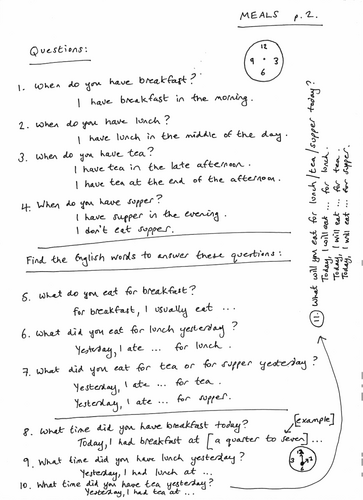 MEALS p.2.
Questions:
12
9 3
6
1. When do you have breakfast?
I have breakfast in the morning.
2. When do you have lunch?
I have lunch in the middle of the day.
3. When do you have tea?
I have tea in the late afternoon.
I have tea at the end of the afternoon.
4. When do you have supper?
I have supper in the evening.
I don't eat supper.
Find the English words to answer these questions:
5. What do you eat for breakfast?
For breakfast, I usually eat ...
6. What did you eat for lunch yesterday?
Yesterday, I ate ... for lunch.
7. What did you eat for tea or for supper yesterday?
Yesterday, I ate ... for tea.
Yesterday, I ate ... for supper.
8. What time did you have breakfast today?
[example]
Today, I had breakfast at [a quarter to seven] ...
9. What time did you have lunch yesterday?
Yesterday, I had lunch at ...
10. What time did you have tea yesterday?
Yesterday, I had tea at ...
11. What will you eat for lunch/tea/supper today?
Today, I will eat ... for lunch.
Today, I will eat ... for tea.
Today, I will eat ... for supper.